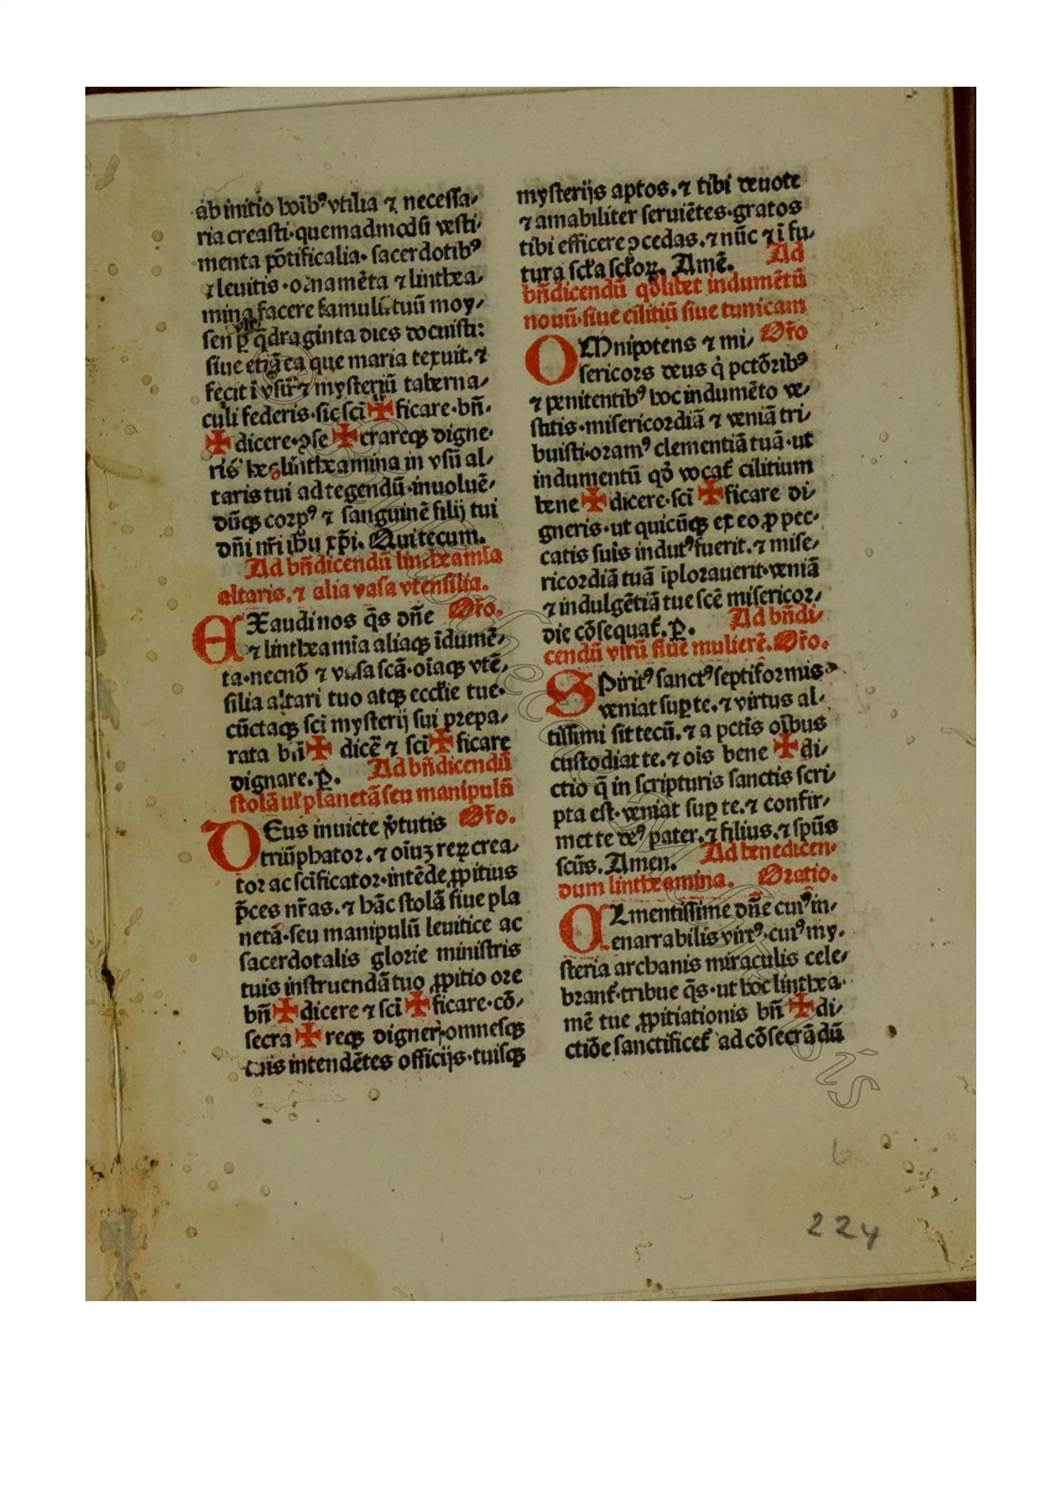 ab initio hoīb⁹ vtilia ⁊ necessa-
ria creasti·quemadmodū vesti-
menta pōtificalia·sacerdotib⁹
⁊ leuitis·ornamēta ⁊ linthea-
mina facere famulū tuū moy-
sen ꝑ q̄draginta dies docuisti:
siue etiā ea que maria texuit·⁊
fecit ī vsū ⁊ mysteriū taberna-
culi federis·sic sci ✠ ficare·bn̄·
✠ dicere·ꝯse ✠ crareqꝫ digne-
ris hec lintheamina in vsū al-
taris tui ad tegendū·inuoluē-
dūqꝫ corp⁹ ⁊ sanguinē filij tui
dn̄i nr̄i ihū xp̄i. Qui tecum.
Ad bn̄dicendū lintheamīa
altaris·⁊ alia vasa vtensilia.
EXaudi nos q̄s dn̄e Or̄o.
⁊ lintheamīa aliaqꝫ īdumē-
ta·necnō ⁊ vasa scā·oīaqꝫ vtē-
silia altari tuo atqꝫ eccl̄ie tue·
cūctaqꝫ sci mysterij sui prepa-
rata bn̄ ✠ dicē ⁊ sci ✠ ficare
dignare.ꝑ. Ad bn̄dicendū
stolā ul̄ planetā seu manipulū
DEus inuicte v̄tutis Or̄o.
triūphator·⁊ oīuꝫ reꝝ crea-
tor ac scificator·intēde ꝓpitius
p̄ces nr̄as·⁊ hāc stolā siue pla
netā·seu manipulū leuitice ac
sacerdotalis glorie ministris
tuis instruendā tuo ꝓpitio ore
bn̄ ✠ dicere ⁊ sci ✠ ficare·cō-
secra ✠ reqꝫ digneris·omnesqꝫ
tuis intendētes officijs·tuisqꝫ
mysterijs aptos·⁊ tibi deuote
⁊ amabiliter seruiētes·gratos
tibi efficere ꝯcedas·⁊ nūc ⁊ ī fu-
tura scl̄a scl̄oꝝ. Amē. Ad
bn̄dicendū qōlibet indumētū
nouū·siue cilitiū siue tunicam
OMnipotens ⁊ mi- Or̄o
sericors deus q̇ pctōrib⁹
⁊ penitentib⁹ hoc indumēto ve-
stitis·misericordiā ⁊ veniā tri-
buisti·oram⁹ clementiā tuā·ut
indumentū qd̄ vocat̄ cilitium
bene ✠ dicere·sci ✠ ficare di-
gneris·ut quicūqꝫ ex eo ꝓ pec-
catis suis indut⁹ fuerit·⁊ mise-
ricordiā tuā īplorauerit·veniā
⁊ indulgētiā tue scē misericor-
die cōsequat̄.ꝑ. Ad bn̄di-
cendū virū siue mulierē. Or̄o.
SPirit⁹ sanct⁹ septiformis
veniat suꝑ te·⁊ virtus al-
tissimi sit tecū·⁊ a pctīs oībus
custodiat te·⁊ oīs bene ✠ di-
ctio q̄ in scripturis sanctis scri-
pta est·veniat suꝑ te·⁊ confir-
met te de⁹ pater·⁊ filius·⁊ spūs
scūs. Amen. Ad benedicen-
dum lintheamina. Oratio.
CLementissime dn̄e cui⁹ in-
enarrabilis virt⁹·cui⁹ my-
steria archanis miraculis cele-
brant̄·tribue q̄s·ut hoc linthea-
mē tue ꝓpitiationis bn̄ ✠ di-
ctiōe sanctificet̄ ad cōsecrādū
224